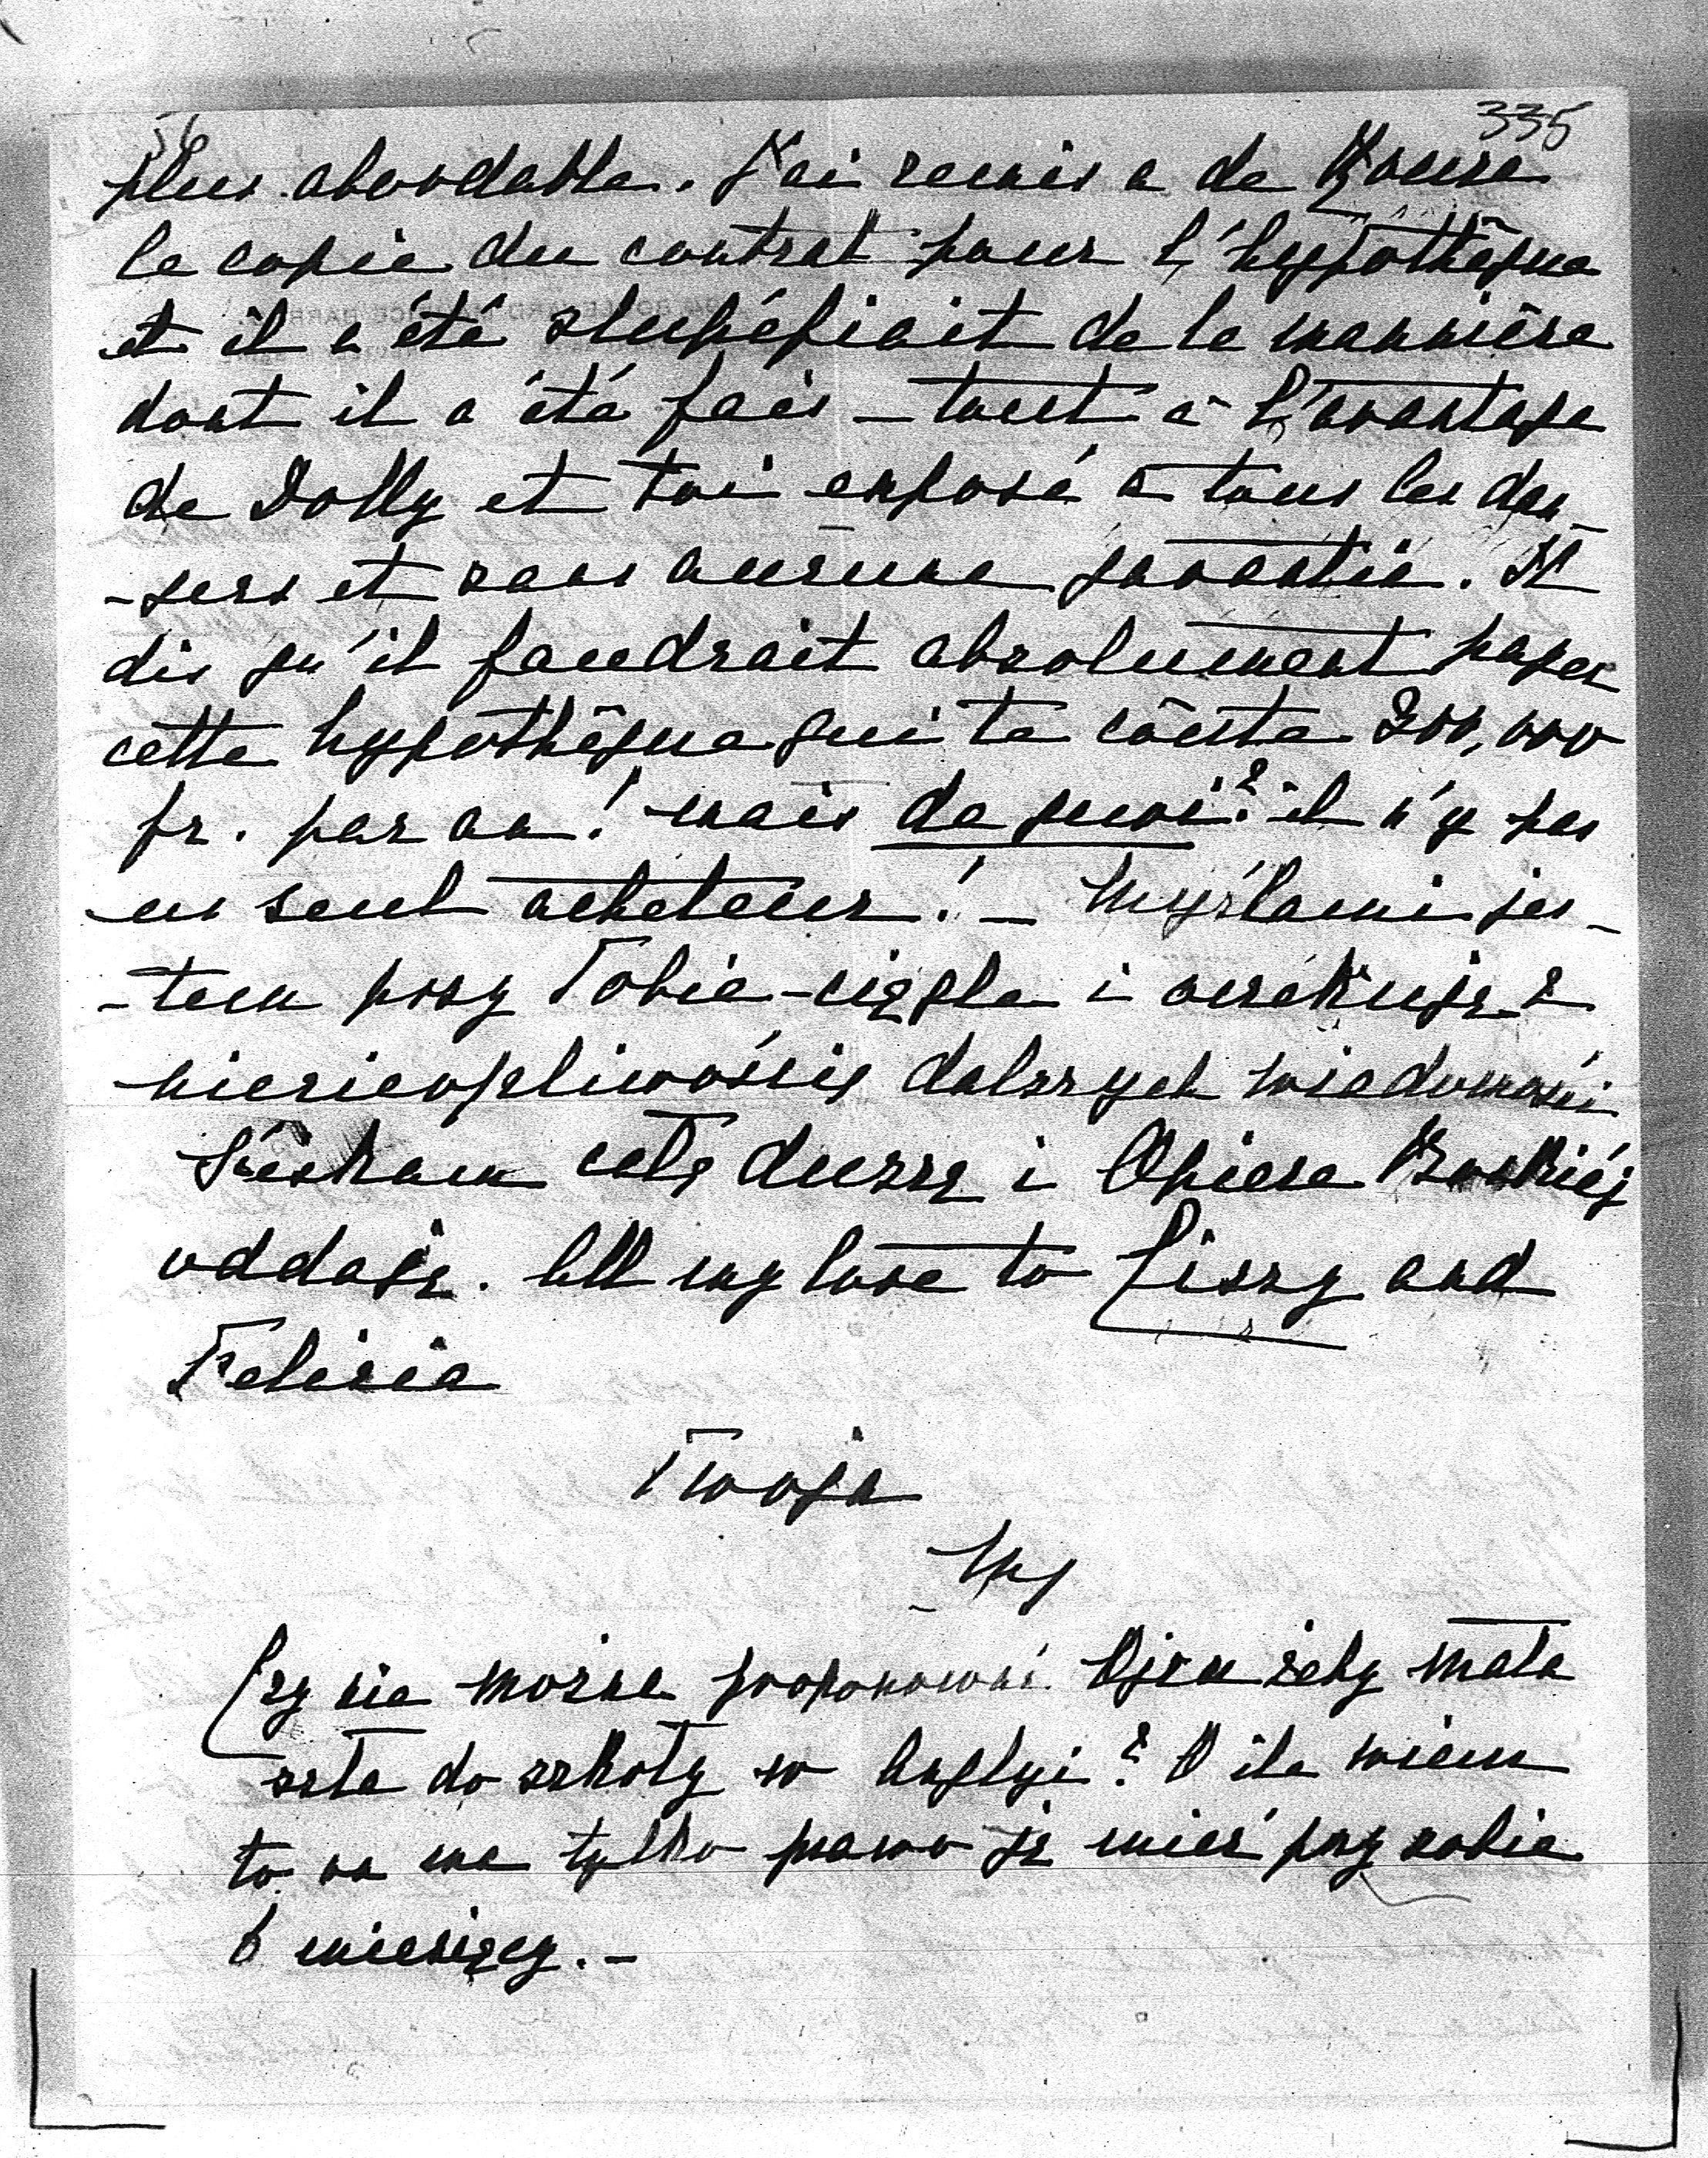 335
plus abordable. J'ai remis a de Krause
la copie du contrat pour l'hypothêque
et il a été stupéfiait de la mannière
dont il a été fais – tout à l'avantage
de Dolly et toi exposé à tous les dan-
-gers et sans aucune garantie. Il
dis qu'il faudrait absolument payer
cette hypothêque qui te coûte 200,000
fr. par an! mais de quoi? il n'y pas
un seul acheteur! – Myślami jes-
-tem przy Tobie ciągle i oczekuję z
niecierpliwością dalszych wiadomości
Ściskam całą duszą i Opiece Boskiéj
oddaję. All my love to Lizzy and
Felicia
Twoja
My
Czy nie można proponować Ojcu żeby mała
szła do szkoły w Anglyi? O ile wiem
to on ma tylko prawo ją mieć przy sobie
6 miesięcy. –